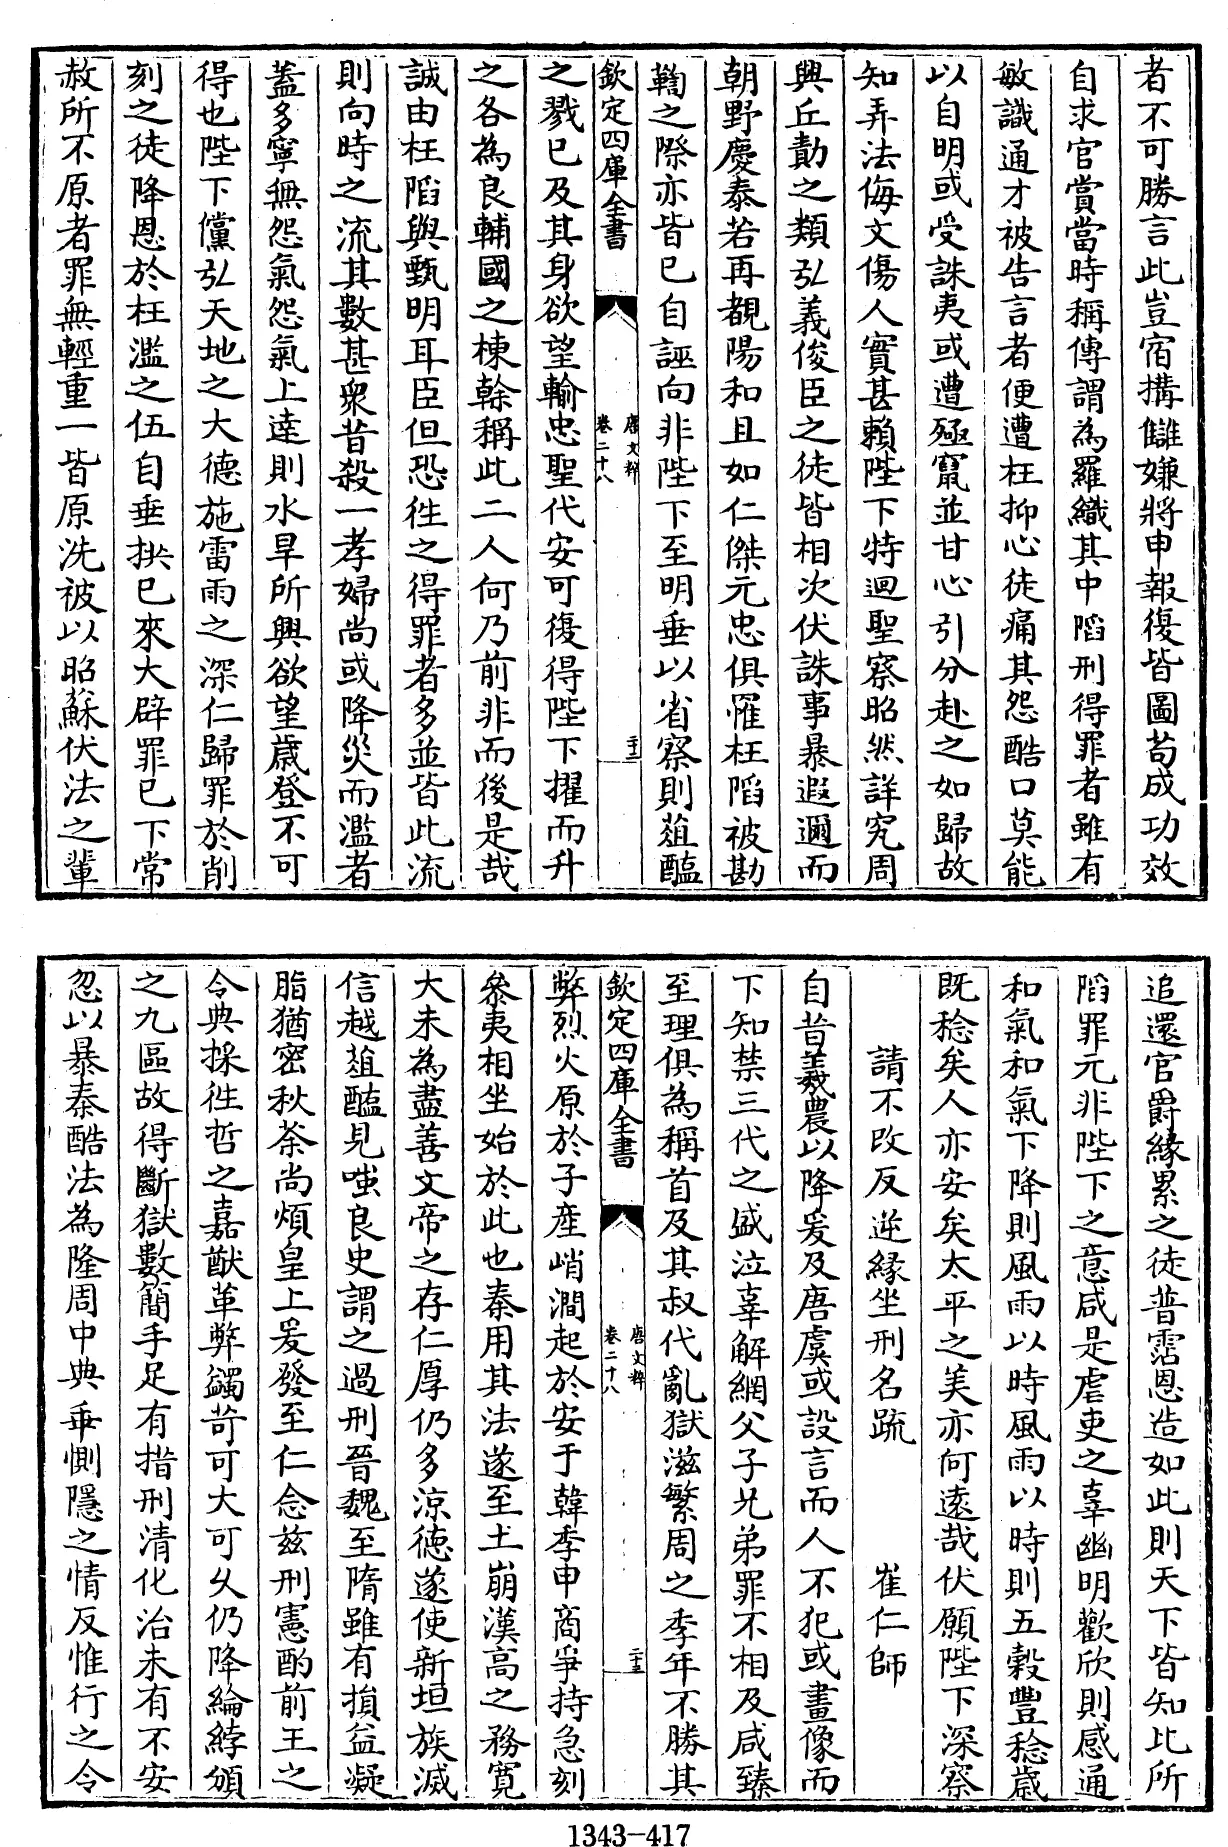 者不可勝言此豈宿搆讎嫌將申報復皆圖苟成功效
自求官賞當時稱傳謂為羅織其中陷刑得罪者雖有
敏識通才被告言者便遭枉抑心徒痛其怨酷口莫能
以自明或受誅夷或遭殛竄並甘心引分赴之如歸故
知弄法侮文傷人實甚賴陛下特迴聖察昭然詳究周
興丘勣之類弘義俊臣之徒皆相次伏誅事暴遐邇而
朝野慶泰若再覩陽和且如仁傑元忠俱罹枉陷被勘
鞫之際亦皆已自誣向非陛下至明垂以省察則葅醢
欽定四庫全書
唐文粹
卷二十八
二十二
之戮已及其身欲望輸忠聖代安可復得陛下擢而升
之各為良輔國之棟榦稱此二人何乃前非而後是哉
誠由枉陷與甄明耳臣但恐徃之得罪者多並皆此流
則向時之流其數甚衆昔殺一孝婦尚或降災而濫者
蓋多寧無怨氣怨氣上達則水旱所興欲望歳登不可
得也陛下儻弘天地之大德施雷雨之深仁歸罪於削
刻之徒降恩於枉濫之伍自垂拱已來大辟罪已下常
赦所不原者罪無輕重一皆原洗被以昭蘇伏法之輩
追還官爵緣累之徒普霑恩造如此則天下皆知比所
陷罪元非陛下之意咸是虐吏之辜幽明歡欣則感通
和氣和氣下降則風雨以時風雨以時則五穀豐稔歲
既稔矣人亦安矣太平之美亦何遠哉伏願陛下深察
請不改反逆緣坐刑名疏　　崔仁師
自昔羲農以降爰及唐虞或設言而人不犯或畫像而
下知禁三代之盛泣辜解網父子兄弟罪不相及咸臻
至理俱為稱首及其叔代亂獄滋繁周之季年不勝其
欽定四庫全書
唐文粹
卷二十八
二十三
弊烈火原於子産峭澗起於安于韓季申商爭持急刻
叅夷相坐始於此也秦用其法遂至土崩漢高之務寛
大未為盡善文帝之存仁厚仍多涼德遂使新垣族滅
信越葅醢見嗤良史謂之過刑晉魏至隋雖有損益凝
脂猶密秋荼尚煩皇上爰發至仁念兹刑憲酌前王之
令典採徃哲之嘉猷革弊蠲苛可大可久仍降綸綍頒
之九區故得斷獄數簡手足有措刑清化治未有不安
忽以暴秦酷法為隆周中典乖惻隱之情反惟行之令
1343-417